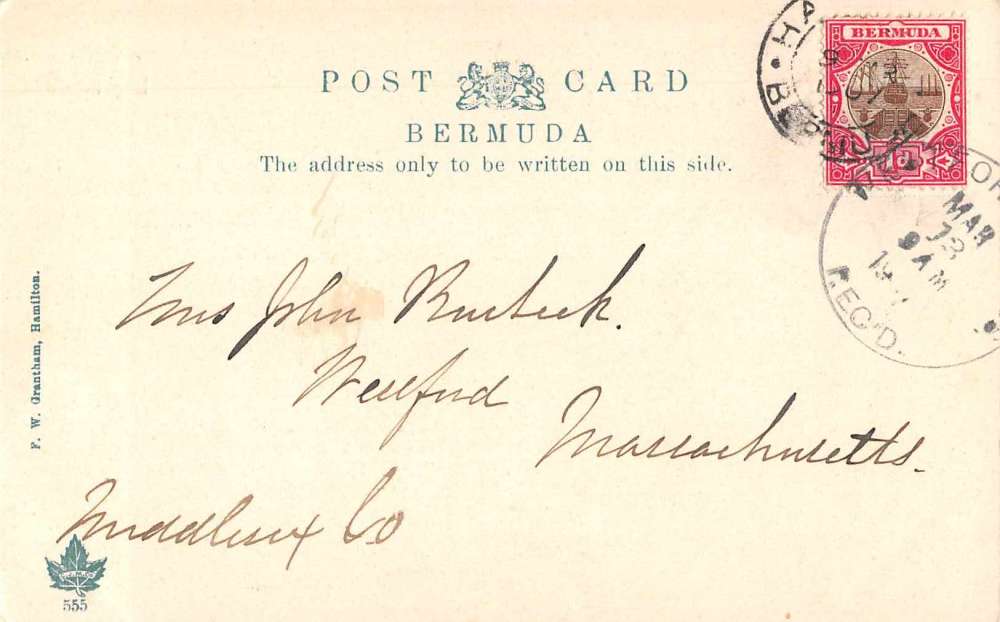 POST CARD
BERMUDA
The address only to be written on this side.
BERMUDA
1d
MAR
13
9 AM
REC'D.
Mrs John
Massachusetts.
Middlesex Co
F. W. Grantham, Hamilton.
555